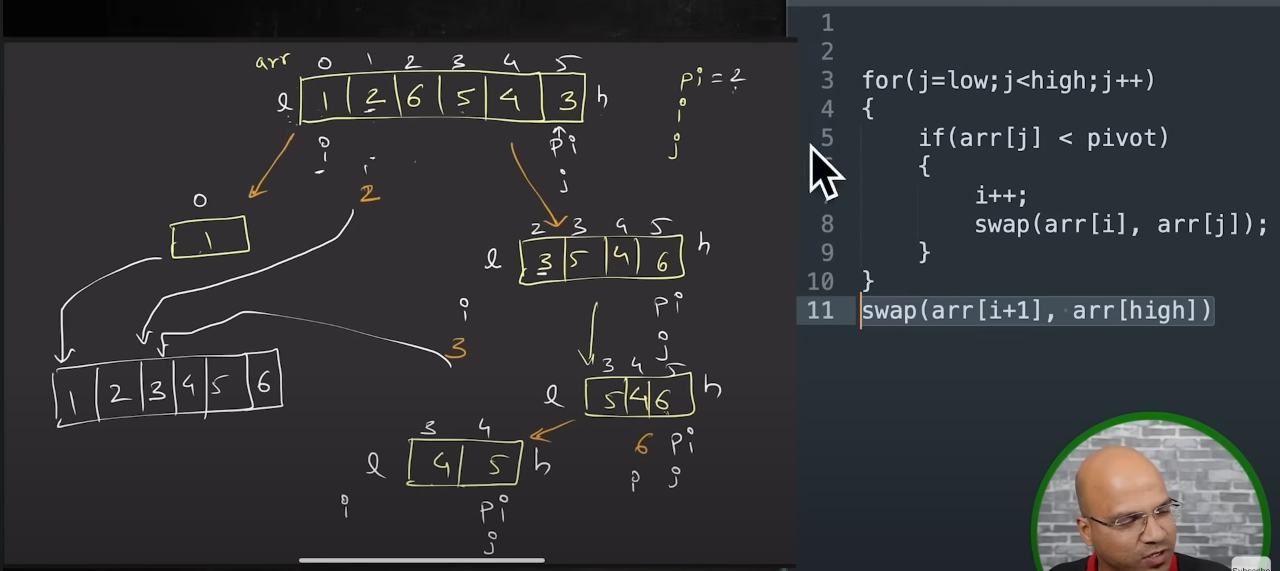 arr 0 1 2 3 4 5
l 1 2 6 5 4 3 h
pi = 2
i
j
i
i
pi
j
2
0
1
2 3 4 5
l 3 5 4 6 h
pi
j
i
3
3 4 5
l 5 4 6 h
6 pi
j
1 2 3 4 5 6
3 4
l 4 5 h
i
pi
j
1
2
3 for(j=low;j<high;j++)
4 {
5 if(arr[j] < pivot)
{
i++;
8 swap(arr[i], arr[j]);
9 }
10 }
11 swap(arr[i+1], arr[high])
Subscribe